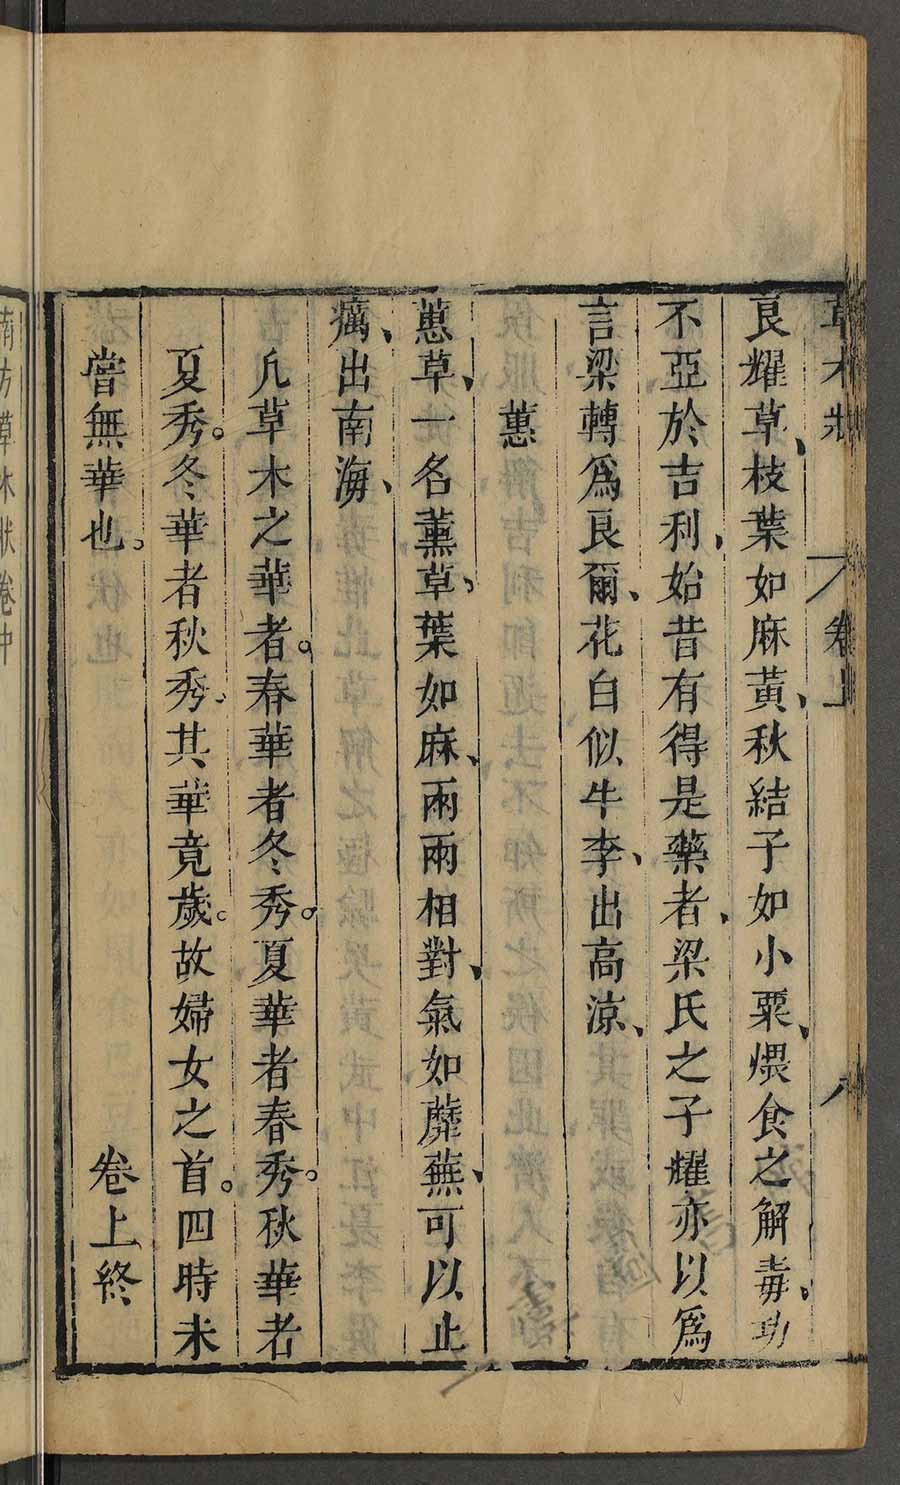 草木狀 卷上 八
良耀草、枝葉如麻黃、秋結子如小粟、煨食之解毒、功
不亞於吉利、始昔有得是藥者、梁氏之子耀亦以爲
言梁轉爲良爾、花白似牛李、出高涼、
蕙
蕙草、一名薰草、葉如麻、兩兩相對、氣如蘼蕪、可以止
癘、出南海、
凡草木之華者。春華者冬秀。夏華者春秀。秋華者
夏秀。冬華者秋秀。其華竟歲。故婦女之首。四時未
嘗無華也。 卷上終
南方草木狀卷中